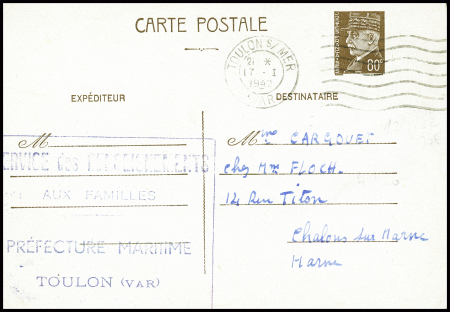 CARTE POSTALE
TOULON S/MER
21 *
17 - I
1942
VAR
80c
EXPÉDITEUR
DESTINATAIRE
M
SERVICE des RENSEIGNEMENTS
AUX FAMILLES
PRÉFECTURE MARITIME
TOULON (VAR)
Mme CARGOUET
chez Mme FLOCH.
12 Rue Titon
Chalons sur Marne
Marne